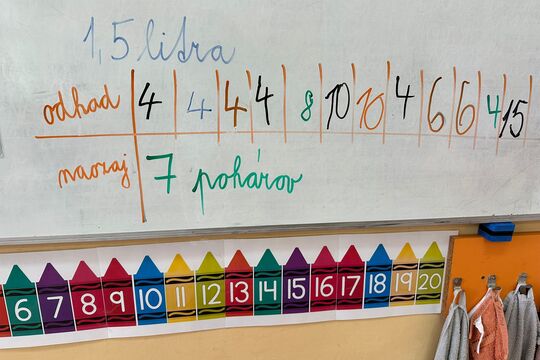 1,5 litra
odhad 4 4 4 4 8 10 10 4 6 6 4 15
naozaj 7 pohárov
6 7 8 9 10 11 12 13 14 15 16 17 18 19 20